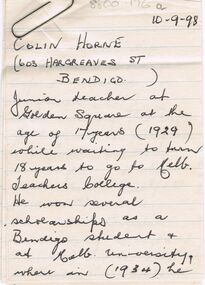 8800-176a
10-9-98
COLIN HORNE
(603 HARGREAVES ST
BENDIGO.)
Junior teacher at
Golden Square at the
age of 17 years (1929)
while waiting to turn
18 years to go to Melb.
Teachers College.
He won several
scholarships as a
Bendigo student &
at Melb. university,
where in (1934) he